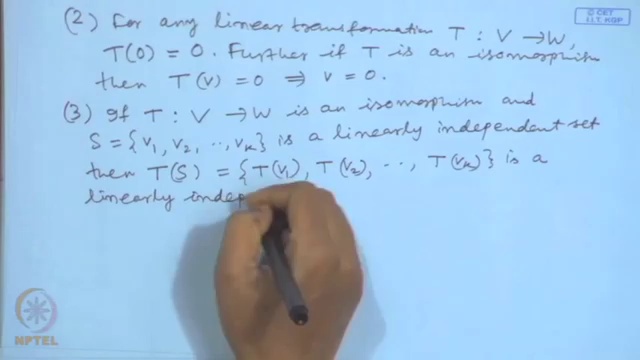 (2) For any linear transformation T : V → W,
T(0) = 0. Further if T is an isomorphism
then T(v) = 0 ⟹ v = 0.
(3) If T : V → W is an isomorphism and
S = {v₁, v₂, .., vₖ} is a linearly independent set
then T(S) = {T(v₁), T(v₂), .., T(vₖ)} is a
linearly indep
© CET
I.I.T. KGP
NPTEL